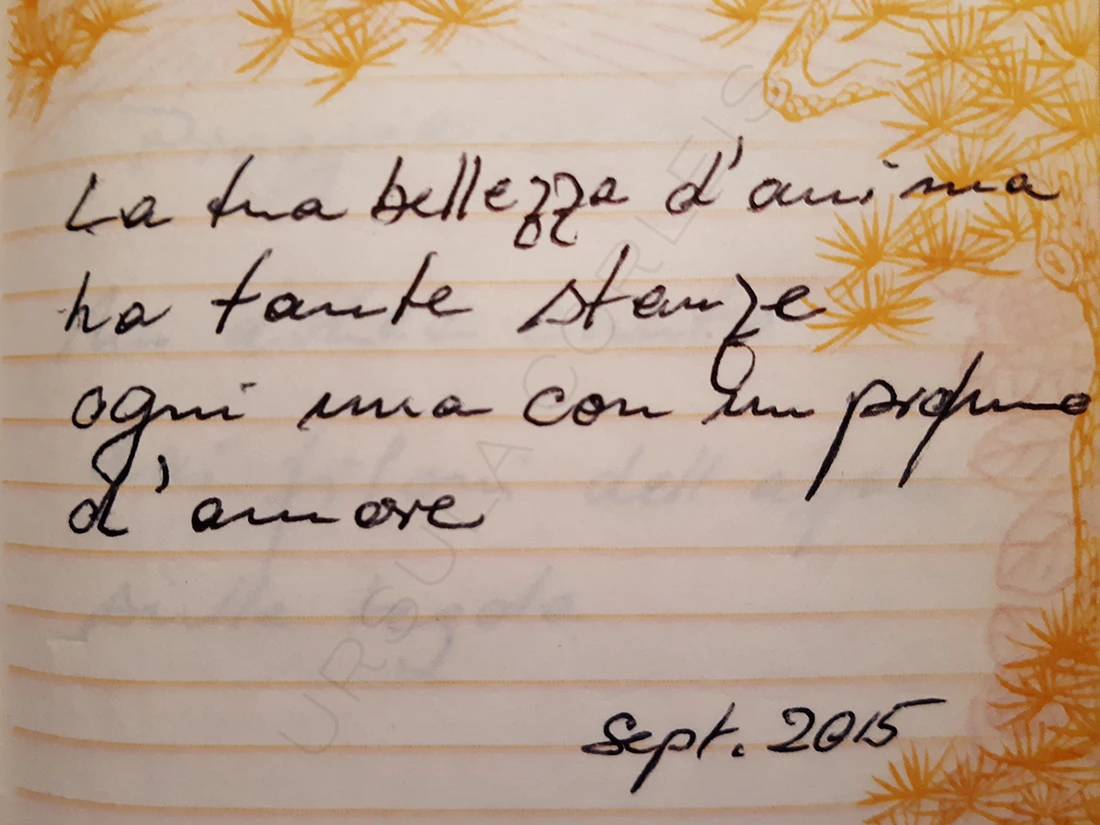 La tua bellezza d'anima
ha tante stanze
ogni una con un profumo
d'amore
Sept. 2015
URSULA CORLEIS